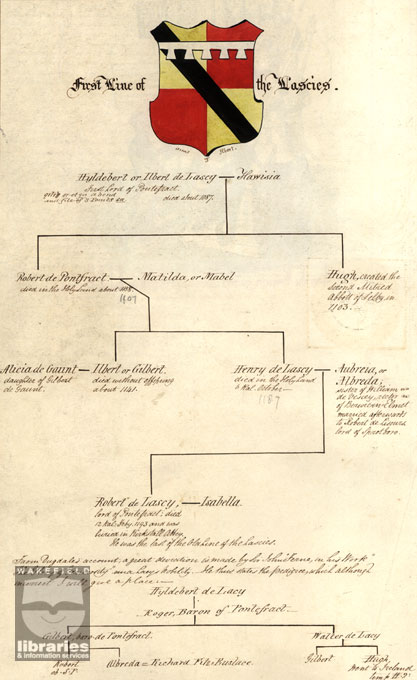 First Line of the Lascies.
Arms of Ilbert.
Hyldebert or Ilbert de Lascy — Hawisia
First Lord of Pontefract.
died about 1087.
Robert de Pontfract — Matilda, or Mabel
died in the Holy Land about
1107
Hugh, created the
second Mitred
Abbott of Selby, in
1103.
Alicia de Gaunt — Ilbert or Gilbert.
daughter of Gilbert
de Gaunt.
died without offspring
about 1141.
Henry de Lascy —
died in the Holy Land
1187
Aubreia, or
Albreda;
sister of William
de Vescy, rector
of
married afterwards
to Robert de Lisours
lord of Sprotboro.
Robert de Lascy, — Isabella.
lord of Pontefract; died
1193 and was
buried in Kirkstall Abbey.
He was the last of the Old line of the Lascies.
From Dugdale's account, a great deviation is made by Sir John Ferne, in his work
He thus states the pedigree, which although
incorrect I will give a place.
Hyldeberd de Lacy
Roger, Baron of Pontefract.
Gilbert, baro de Pontefract.
Walter de Lacy
Robert
ob. S.P.
Albreda = Richard Fitz Eustace.
Gilbert
Hugh,
went to Ireland
temp H. 2d
WAKEFIELD
libraries
& information services